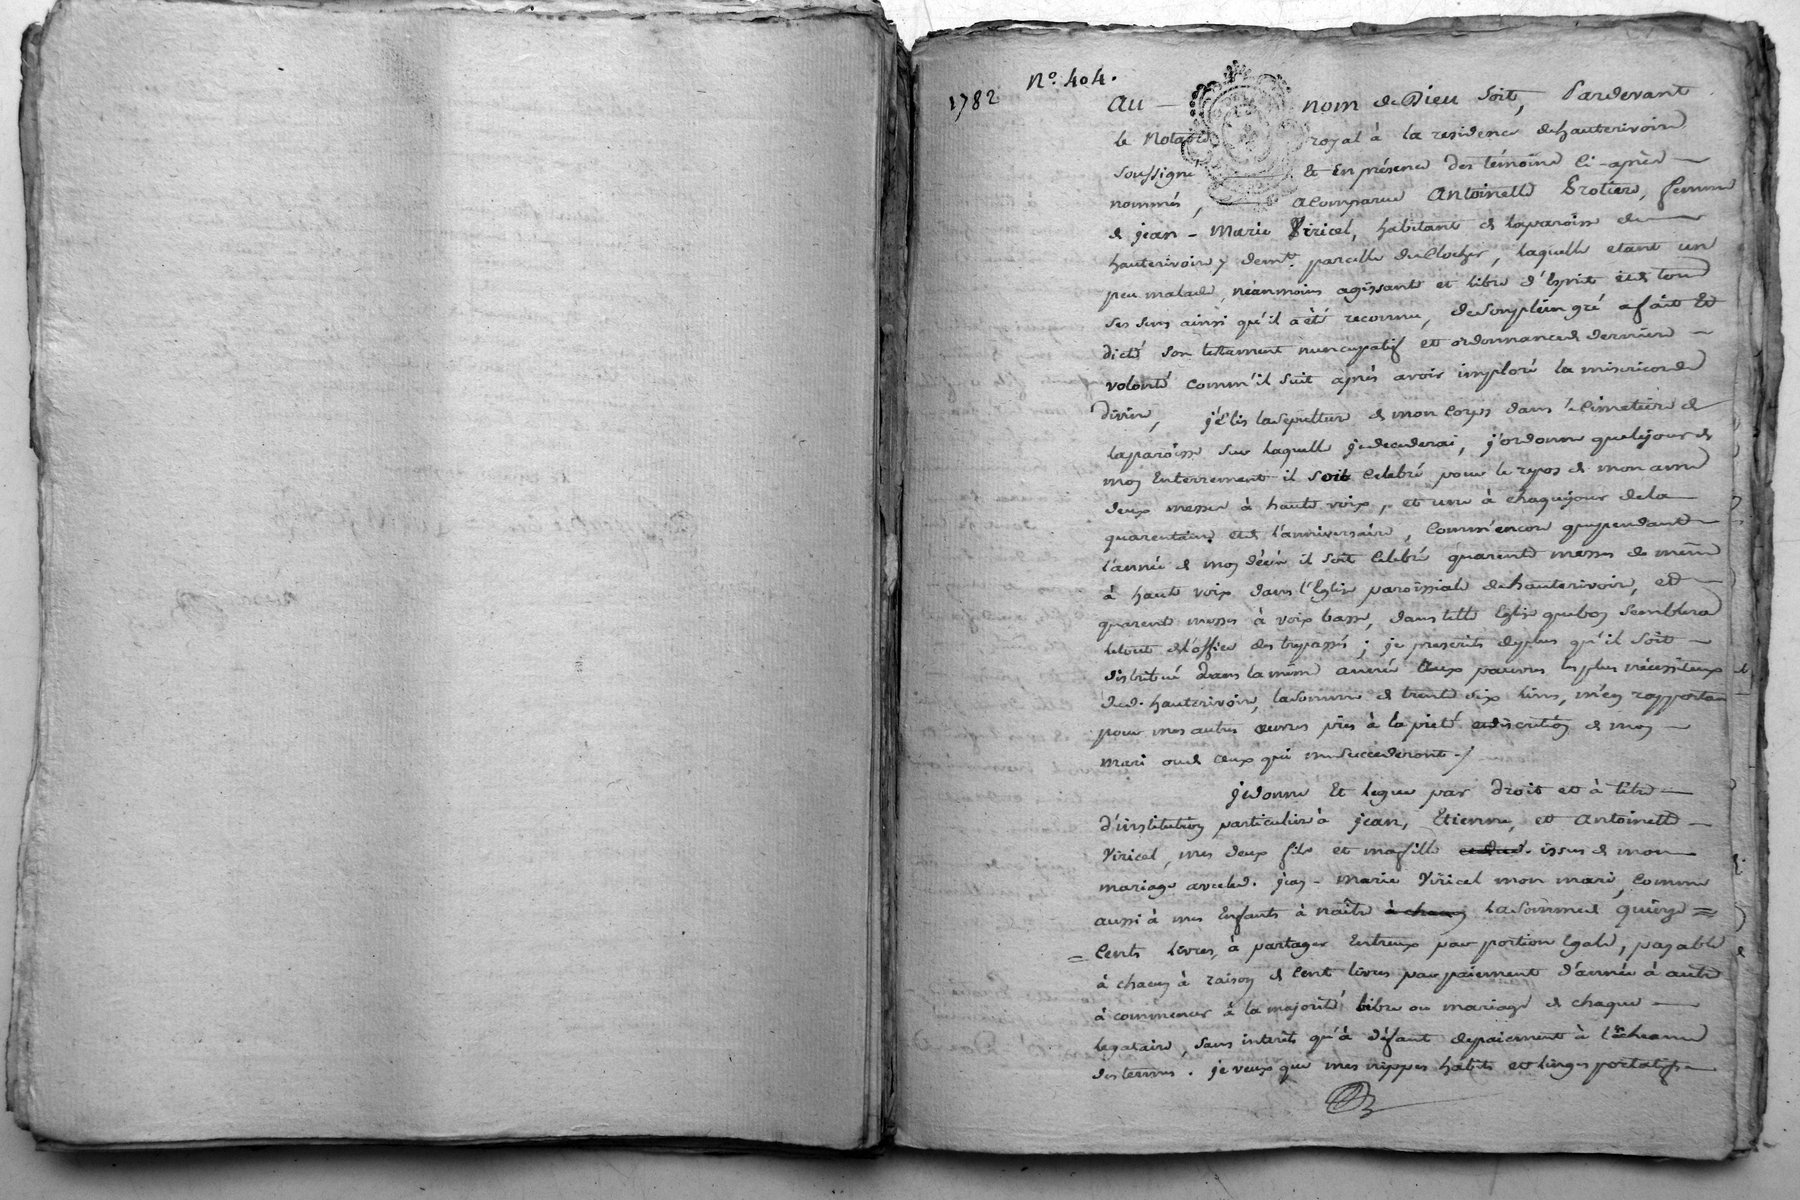 1782
N.o 404.
Au — nom de Dieu soit, Pardevant
le Notaire royal à la residence de hauterivoire
soussigné — et En présence des témoins ci-après —
nommés, — a comparue Antoinette Grotier, femme
de jean-Marie Viricel, habitant de la paroisse de —
hauterivoire, parcelle du Clocher, laquelle etant un
peu malade, néanmoins agissante et libre d'Esprit et de tous
ses sens ainsi qu'il a été reconnu, de son plein gré a fait Et
dicté son testament nuncupatif et ordonnance de derniere —
volonté comm'il suit après avoir imploré la misericorde
divine, j'élis la sepulture de mon Corps dans le Cimetiere de
la paroisse sur laquelle je decederai, j'ordonne que le jour de
mon Enterrement il soit Celebré pour le repos de mon ame
deux messes à haute voix, et une à chaque jour de la —
quarentaine et de l'anniversaire, Comm'encore que pendant —
l'année de mon décès il soit Celebré quarente messes de même
à haute voix dans l'Eglise paroissiale de hauterivoire, et —
quarente messes à voix basse, dans telle Eglise que bon semblera
le tout de l'office des trepassés; je prescrits de plus qu'il soit —
distribué dans la même année aux pauvres les plus nécessiteux
de d. hauterivoire, la somme de trente six livres, m'en rapportan
pour mes autres œuvres pies à la pieté et discrétion de mon —
mari ou de ceux qui me succederont ./
je donne Et legue par droit et à titre —
d'institution particuliere à jean, Etienne, et Antoinette —
Viricel, mes deux fils et ma fille issus de mon —
mariage avec led. jean-marie Viricel mon mari, Comme
aussi à mes Enfants à naître à chacun la somme de quinze =
= Cents livres, à partager Entreux par portion Egale, payable
à chacun à raison de Cent livres par paiement d'année à autre
à commencer à la majorité libre ou mariage de chaque —
legataire, sans interêts qu'à défaut de paiement à l'écheance
des termes. je veux que mes nippes habits et linges portatifs —